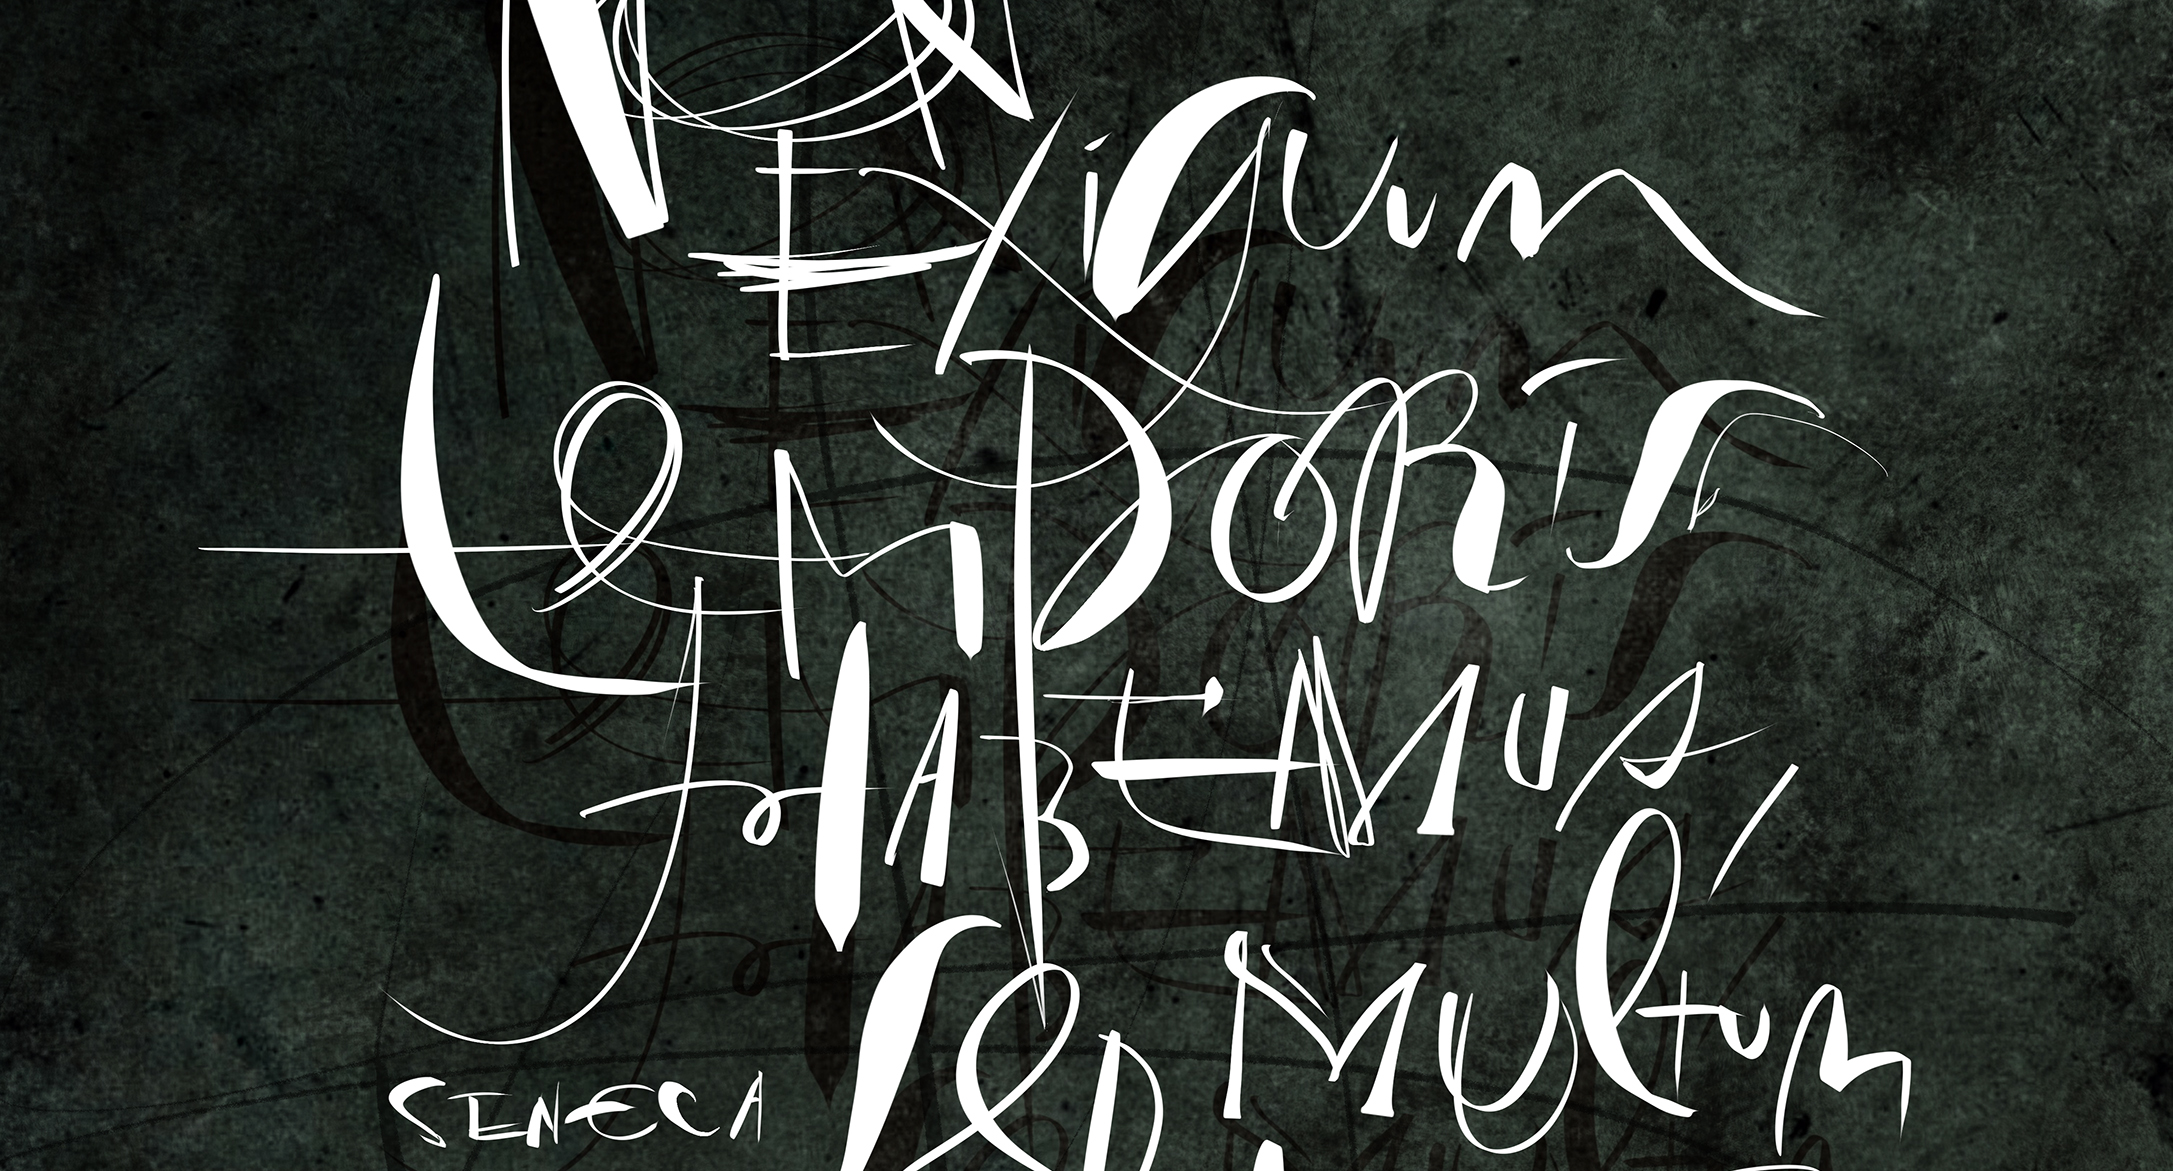 NON
Exiguum
temporis
HABEMUS,
SED Multum
SENECA